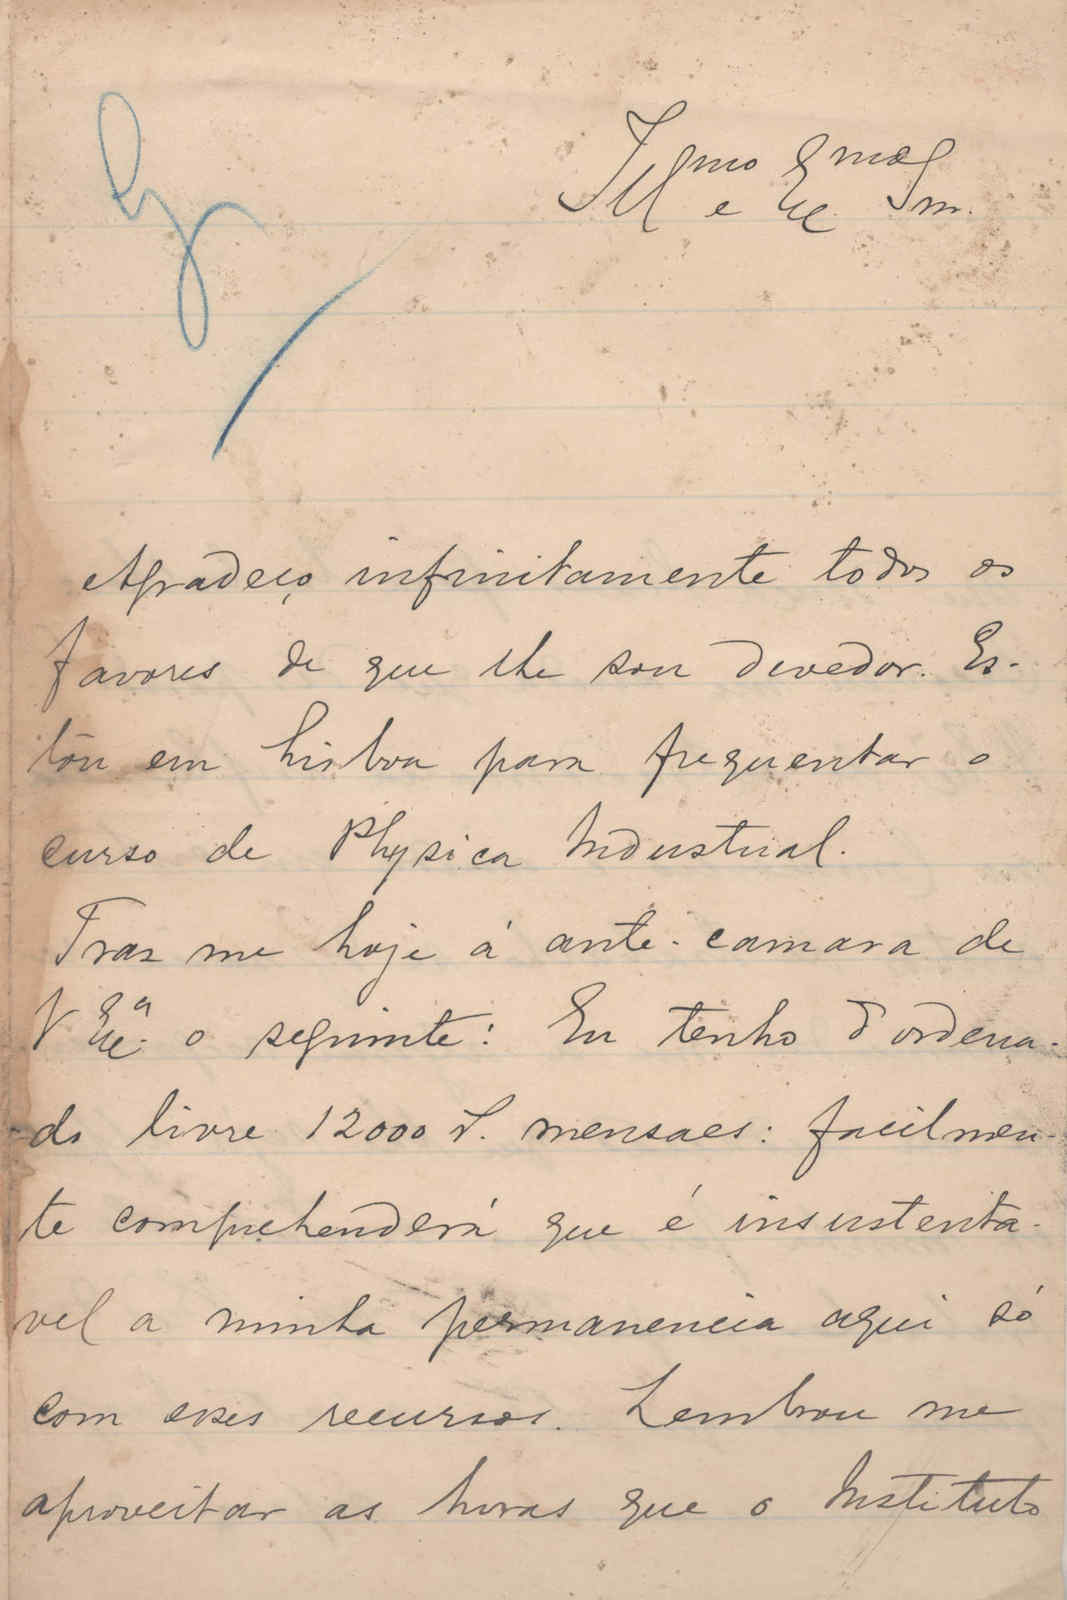 Illmo e Exmo Snr.
Agradeço infinitamente todos os
favores de que lhe sou devedor. Es-
tou em Lisboa para frequentar o
curso de Physica Industrial.
Traz me hoje á ante-camara de
V Exª. o seguinte: Eu tenho d'ordena-
do livre 12000 r. mensaes: facilmen-
te comprehenderá que é insustenta-
vel a minha permanencia aqui só
com esses recursos. Lembrou me
aproveitar as horas que o Instituto